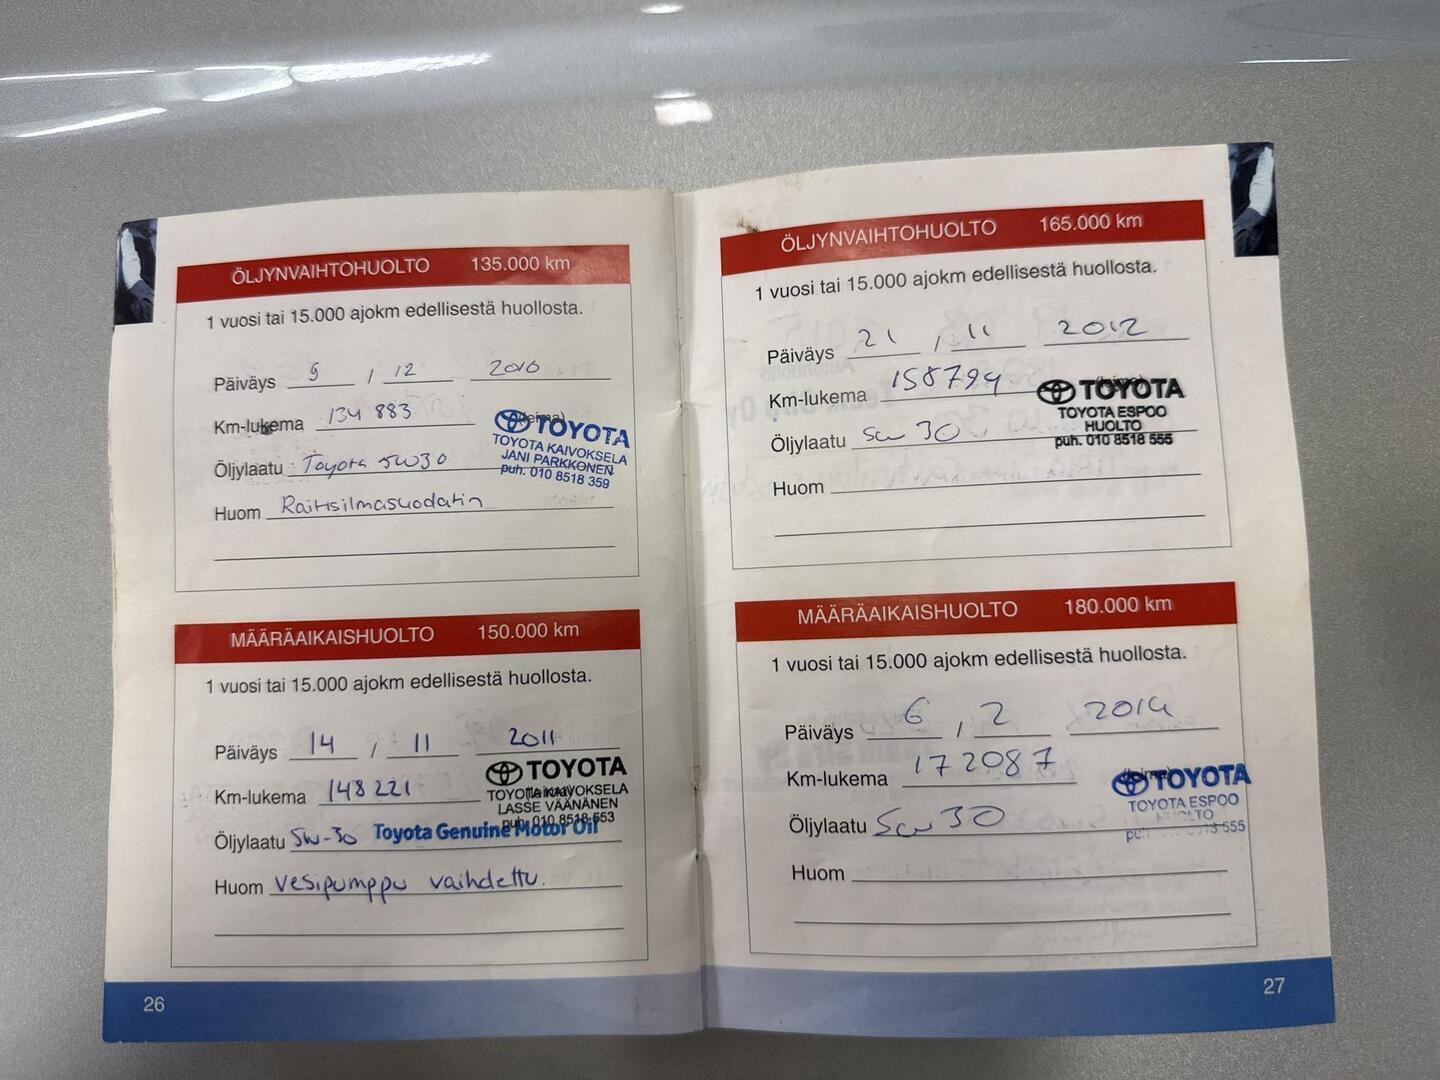 ÖLJYNVAIHTOHUOLTO 135.000 km
1 vuosi tai 15.000 ajokm edellisestä huollosta.
Päiväys 9 / 12 2010
Km-lukema 134 883
Öljylaatu Toyota 5W30
Huom Raitisilmasuodatin
(leima)
TOYOTA
TOYOTA KAIVOKSELA
JANI PARKKONEN
puh. 010 8518 359
MÄÄRÄAIKAISHUOLTO 150.000 km
1 vuosi tai 15.000 ajokm edellisestä huollosta.
Päiväys 14 / 11 2011
Km-lukema 148 221
Öljylaatu 5W-30 Toyota Genuine Motor Oil
Huom Vesipumppu vaihdettu.
(leima)
TOYOTA
TOYOTA KAIVOKSELA
LASSE VÄÄNÄNEN
puh. 010 8518 553
26
ÖLJYNVAIHTOHUOLTO 165.000 km
1 vuosi tai 15.000 ajokm edellisestä huollosta.
Päiväys 21 / 11 2012
Km-lukema 158794
Öljylaatu 5w 30
Huom
(leima)
TOYOTA
TOYOTA ESPOO
HUOLTO
puh. 010 8518 555
MÄÄRÄAIKAISHUOLTO 180.000 km
1 vuosi tai 15.000 ajokm edellisestä huollosta.
Päiväys 6 / 2 2014
Km-lukema 172087
Öljylaatu 5w 30
Huom
(leima)
TOYOTA
TOYOTA ESPOO
HUOLTO
27